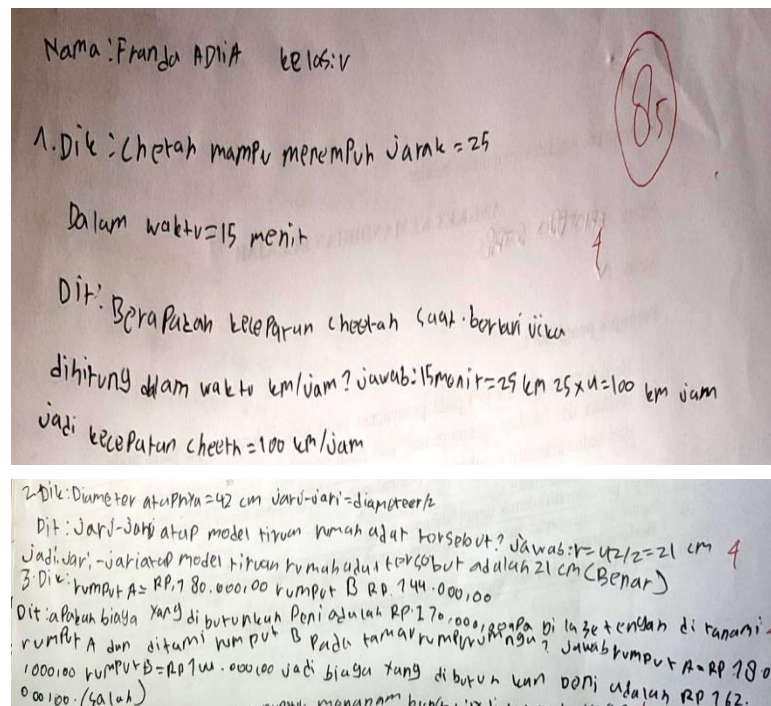 Nama : Franda ADliA kelas : V
85
1. Dik : Chetah mampu menempuh jarak = 25
Dalam waktu = 15 menit
4
Dit : Berapakah kecepatan cheetah saat berlari jika
dihitung dalam waktu km/jam ? jawab : 15 menit = 25 km 25 x 4 = 100 km jam
jadi kecepatan cheeth = 100 km/jam
2. Dik : Diameter atapnya = 42 cm jari-jari = diameteer/2
Dit : jari-jari atap model tiruan rumah adat tersebut ? jawab : r = 42/2 = 21 cm 4
jadi jari-jari atap model tiruan rumah adat tersebut adalah 21 cm (Benar)
3. Dik : rumput A = RP. 180.000,00 rumput B RP. 144.000,00
Dit : apakah biaya yang di butuhkan Deni adalah RP. 170.000,00 bi la setengah di tanami
rumput A dan ditami rumput B pada taman ? jawab rumput A = RP 180
000,00 rumput B = RP 144.000,00 jadi biaya yang di butuh kan Deni adalah RP 162.
000,00. (Salah)
menanam